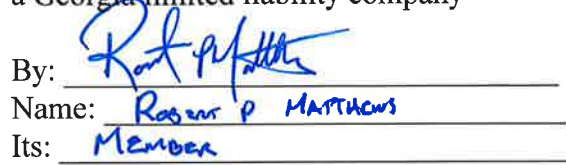 a Georgia limited liability company
By: Robert P Matthews
Name: Robert P MATTHEWS
Its: MEMBER